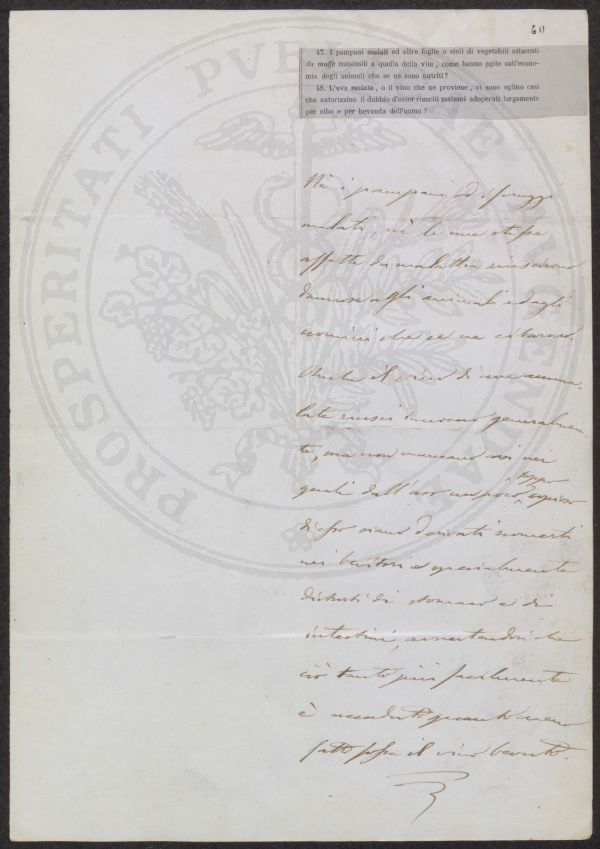 40
47. I pampani malati ed altre foglie o steli di vegetabili attaccati
da muffe consimili a quella della vite, come hanno agito sull'econo-
mia degli animali che se ne sono nutriti?
48. L'uva malata, o il vino che ne proviene, vi sono eglino casi
che autorizzino il dubbio d'esser riusciti malsani adoperati largamente
per cibo e per bevanda dell'uomo?
PROSPERITATI PVBLICAE AVGENDAE
Nè i pampani ed i
malati, nè le uve stesse
affette da malattia riuscirono
dannose agli animali ed agli
uomini che se ne cibarono.
Anche il vino di uve amma-
late riuscì innocuo generalmen-
te, ma non mancano casi nei
troppo
quali dall'uso un poco copioso
di esso siano derivati sconcerti
nei bevitori e specialmente
disturbi di stomaco e di
intestini, avvertendosi che
ciò tanto più facilmente
è accaduto quanto meno
fatto fosse il vino bevuto.